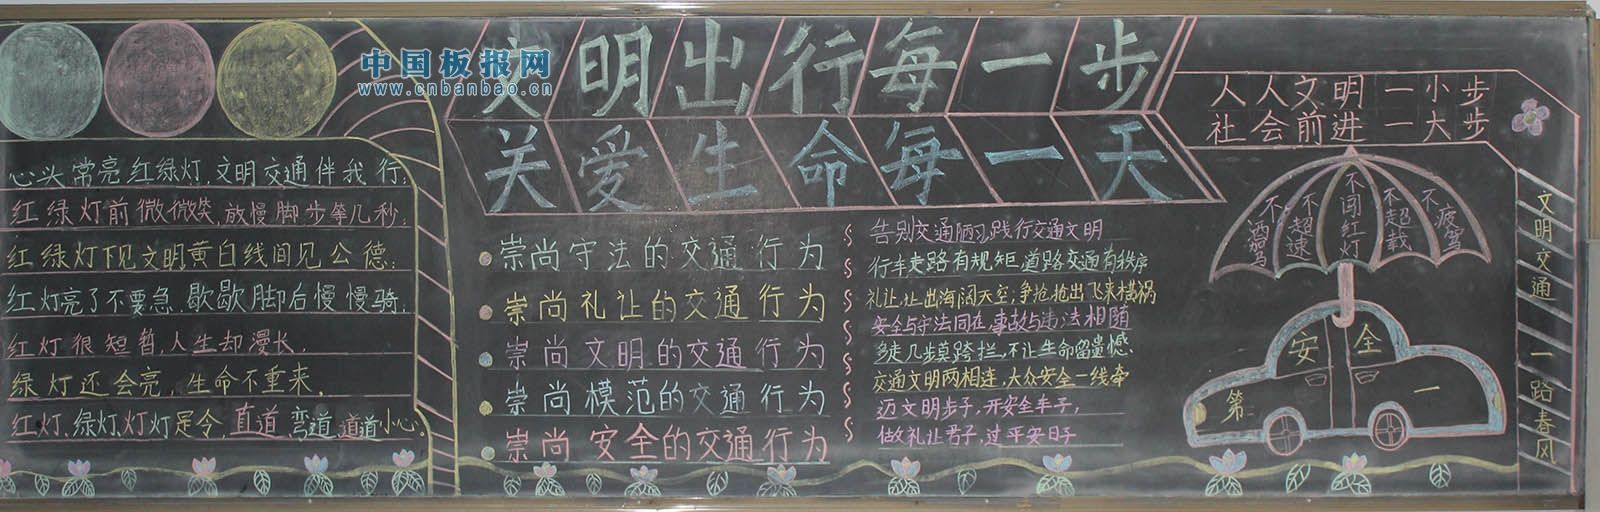 中国板报网
www.cnbanbao.cn
文明出行每一步
关爱生命每一天
人人文明一小步
社会前进一大步
心头常亮红绿灯,文明交通伴我行;
红绿灯前微微笑,放慢脚步等几秒;
红绿灯下见文明黄白线间见公德;
红灯亮了不要急,歇歇脚后慢慢骑;
红灯很短暂,人生却漫长,
绿灯还会亮,生命不重来,
红灯、绿灯、灯灯是令,直道、弯道、道道小心。
崇尚守法的交通行为
崇尚礼让的交通行为
崇尚文明的交通行为
崇尚模范的交通行为
崇尚安全的交通行为
告别交通陋习,践行交通文明
行车走路有规矩,道路交通有秩序
礼让,让出海阔天空;争抢,抢出飞来横祸
安全与守法同在,事故与违法相随
多走几步莫跨拦,不让生命留遗憾
交通文明两相连,大众安全一线牵
迈文明步子,开安全车子,
做礼让君子,过平安日子
不酒驾
不超速
不闯红灯
不超载
不疲驾
安全
第一
文明交通一路春风